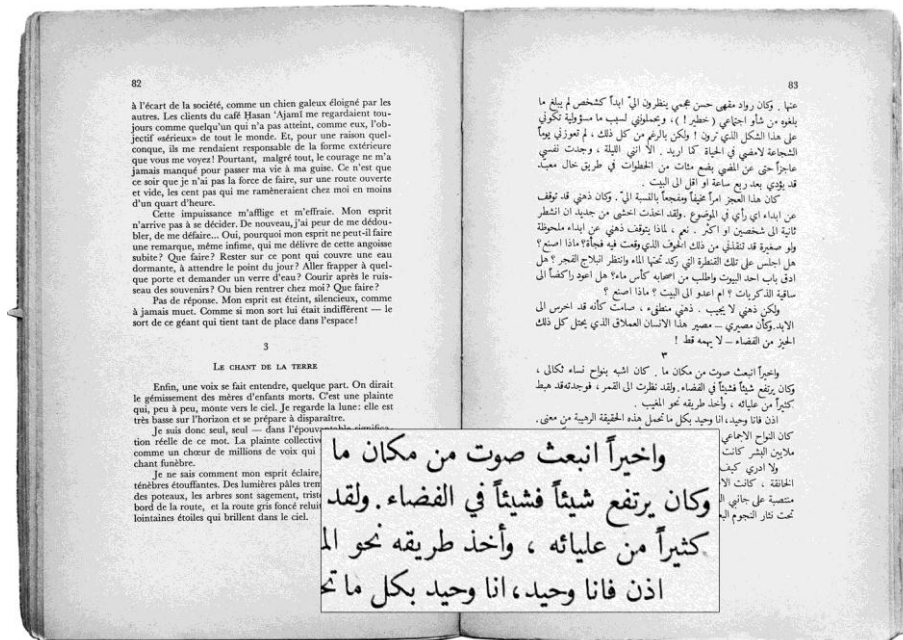 82
à l'écart de la société, comme un chien galeux éloigné par les
autres. Les clients du café Ḥasan 'Ajamī me regardaient tou-
jours comme quelqu'un qui n'a pas atteint, comme eux, l'ob-
jectif «sérieux» de tout le monde. Et, pour une raison quel-
conque, ils me rendaient responsable de la forme extérieure
que vous me voyez! Pourtant, malgré tout, le courage ne m'a
jamais manqué pour passer ma vie à ma guise. Ce n'est que
ce soir que je n'ai pas la force de faire, sur une route ouverte
et vide, les cent pas qui me ramèneraient chez moi en moins
d'un quart d'heure.
Cette impuissance m'afflige et m'effraie. Mon esprit
n'arrive pas à se décider. De nouveau, j'ai peur de me dédou-
bler, de me défaire... Oui, pourquoi mon esprit ne peut-il faire
une remarque, même infime, qui me délivre de cette angoisse
subite? Que faire? Rester sur ce pont qui couvre une eau
dormante, à attendre le point du jour? Aller frapper à quel-
que porte et demander un verre d'eau? Courir après le ruis-
seau des souvenirs? Ou bien rentrer chez moi? Que faire?
Pas de réponse. Mon esprit est éteint, silencieux, comme
à jamais muet. Comme si mon sort lui était indifférent — le
sort de ce géant qui tient tant de place dans l'espace!
3
LE CHANT DE LA TERRE
Enfin, une voix se fait entendre, quelque part. On dirait
le gémissement des mères d'enfants morts. C'est une plainte
qui, peu à peu, monte vers le ciel. Je regarde la lune: elle est
très basse sur l'horizon et se prépare à disparaître.
Je suis donc seul, seul — dans l'épouvantable significa-
tion réelle de ce mot. La plainte collective
comme un chœur de millions de voix qui
chant funèbre.
Je ne sais comment mon esprit éclaire,
ténèbres étouffantes. Des lumières pâles
des poteaux, les arbres sont sagement,
bord de la route, et la route gris foncé
lointaines étoiles qui brillent dans le ciel.
83
عنها . وكان رواد مقهى حسن عجمي ينظرون اليّ ابداً كشخص لم يبلغ ما
بلغوه من شأو اجتماعي ( خطير ! ) ، ويحملوني لسبب ما مسؤولية تكوني
على هذا الشكل الذي ترون ! ولكن بالرغم من كل ذلك ، لم تعوزني يوماً
الشجاعة لامضي في الحياة كما اريد . الا انني الليلة ، وجدت نفسي
عاجزاً حتى عن المضي بضع مئات من الخطوات في طريق خال معبد
قد يؤدي بعد ربع ساعة او اقل الى البيت .
كان هذا العجز امراً مخيفاً ومفجعاً بالنسبة اليّ . وكان ذهني قد توقف
عن ابداء اي رأي في الموضوع . ولقد اخذت اخشى من جديد ان انشطر
ثانية الى شخصين او اكثر . نعم ، لماذا يتوقف ذهني عن ابداء ملحوظة
ولو صغيرة قد تنقذني من ذلك الخوف الذي وقعت فيه فجأة؟ ماذا اصنع؟
هل اجلس على تلك القنطرة التي ركد تحتها الماء وانتظر انبلاج الفجر ؟ هل
ادق باب احد البيوت واطلب من اصحابه كأس ماء؟ هل اعود راكضاً الى
ساقية الذكريات ؟ ام اعدو الى البيت ؟ ماذا اصنع ؟
ولكن ذهني لا يجيب . ذهني منطفيء ، صامت كأنه قد اخرس الى
الابد. وكأن مصيري — مصير هذا الانسان العملاق الذي يحتل كل ذلك
الحيز من الفضاء — لا يهمه قط !
٣
واخيراً انبعث صوت من مكان ما . كان اشبه بنواح نساء ثكالى ،
وكان يرتفع شيئاً فشيئاً في الفضاء. ولقد نظرت الى القمر ، فوجدته قد هبط
كثيراً من عليائه ، وأخذ طريقه نحو المغيب .
اذن فانا وحيد، انا وحيد بكل ما تحمل هذه الحقيقة الرهيبة من معنى .
كان النواح الاجماعي
ملايين البشر كانت
ولا ادري كيف
الخانقة ، كانت
منتصبة على جانبي
تحت نثار النجوم
واخيراً انبعث صوت من مكان ما
وكان يرتفع شيئاً فشيئاً في الفضاء . ولقد
كثيراً من عليائه ، وأخذ طريقه نحو الم
اذن فانا وحيد، انا وحيد بكل ما تح